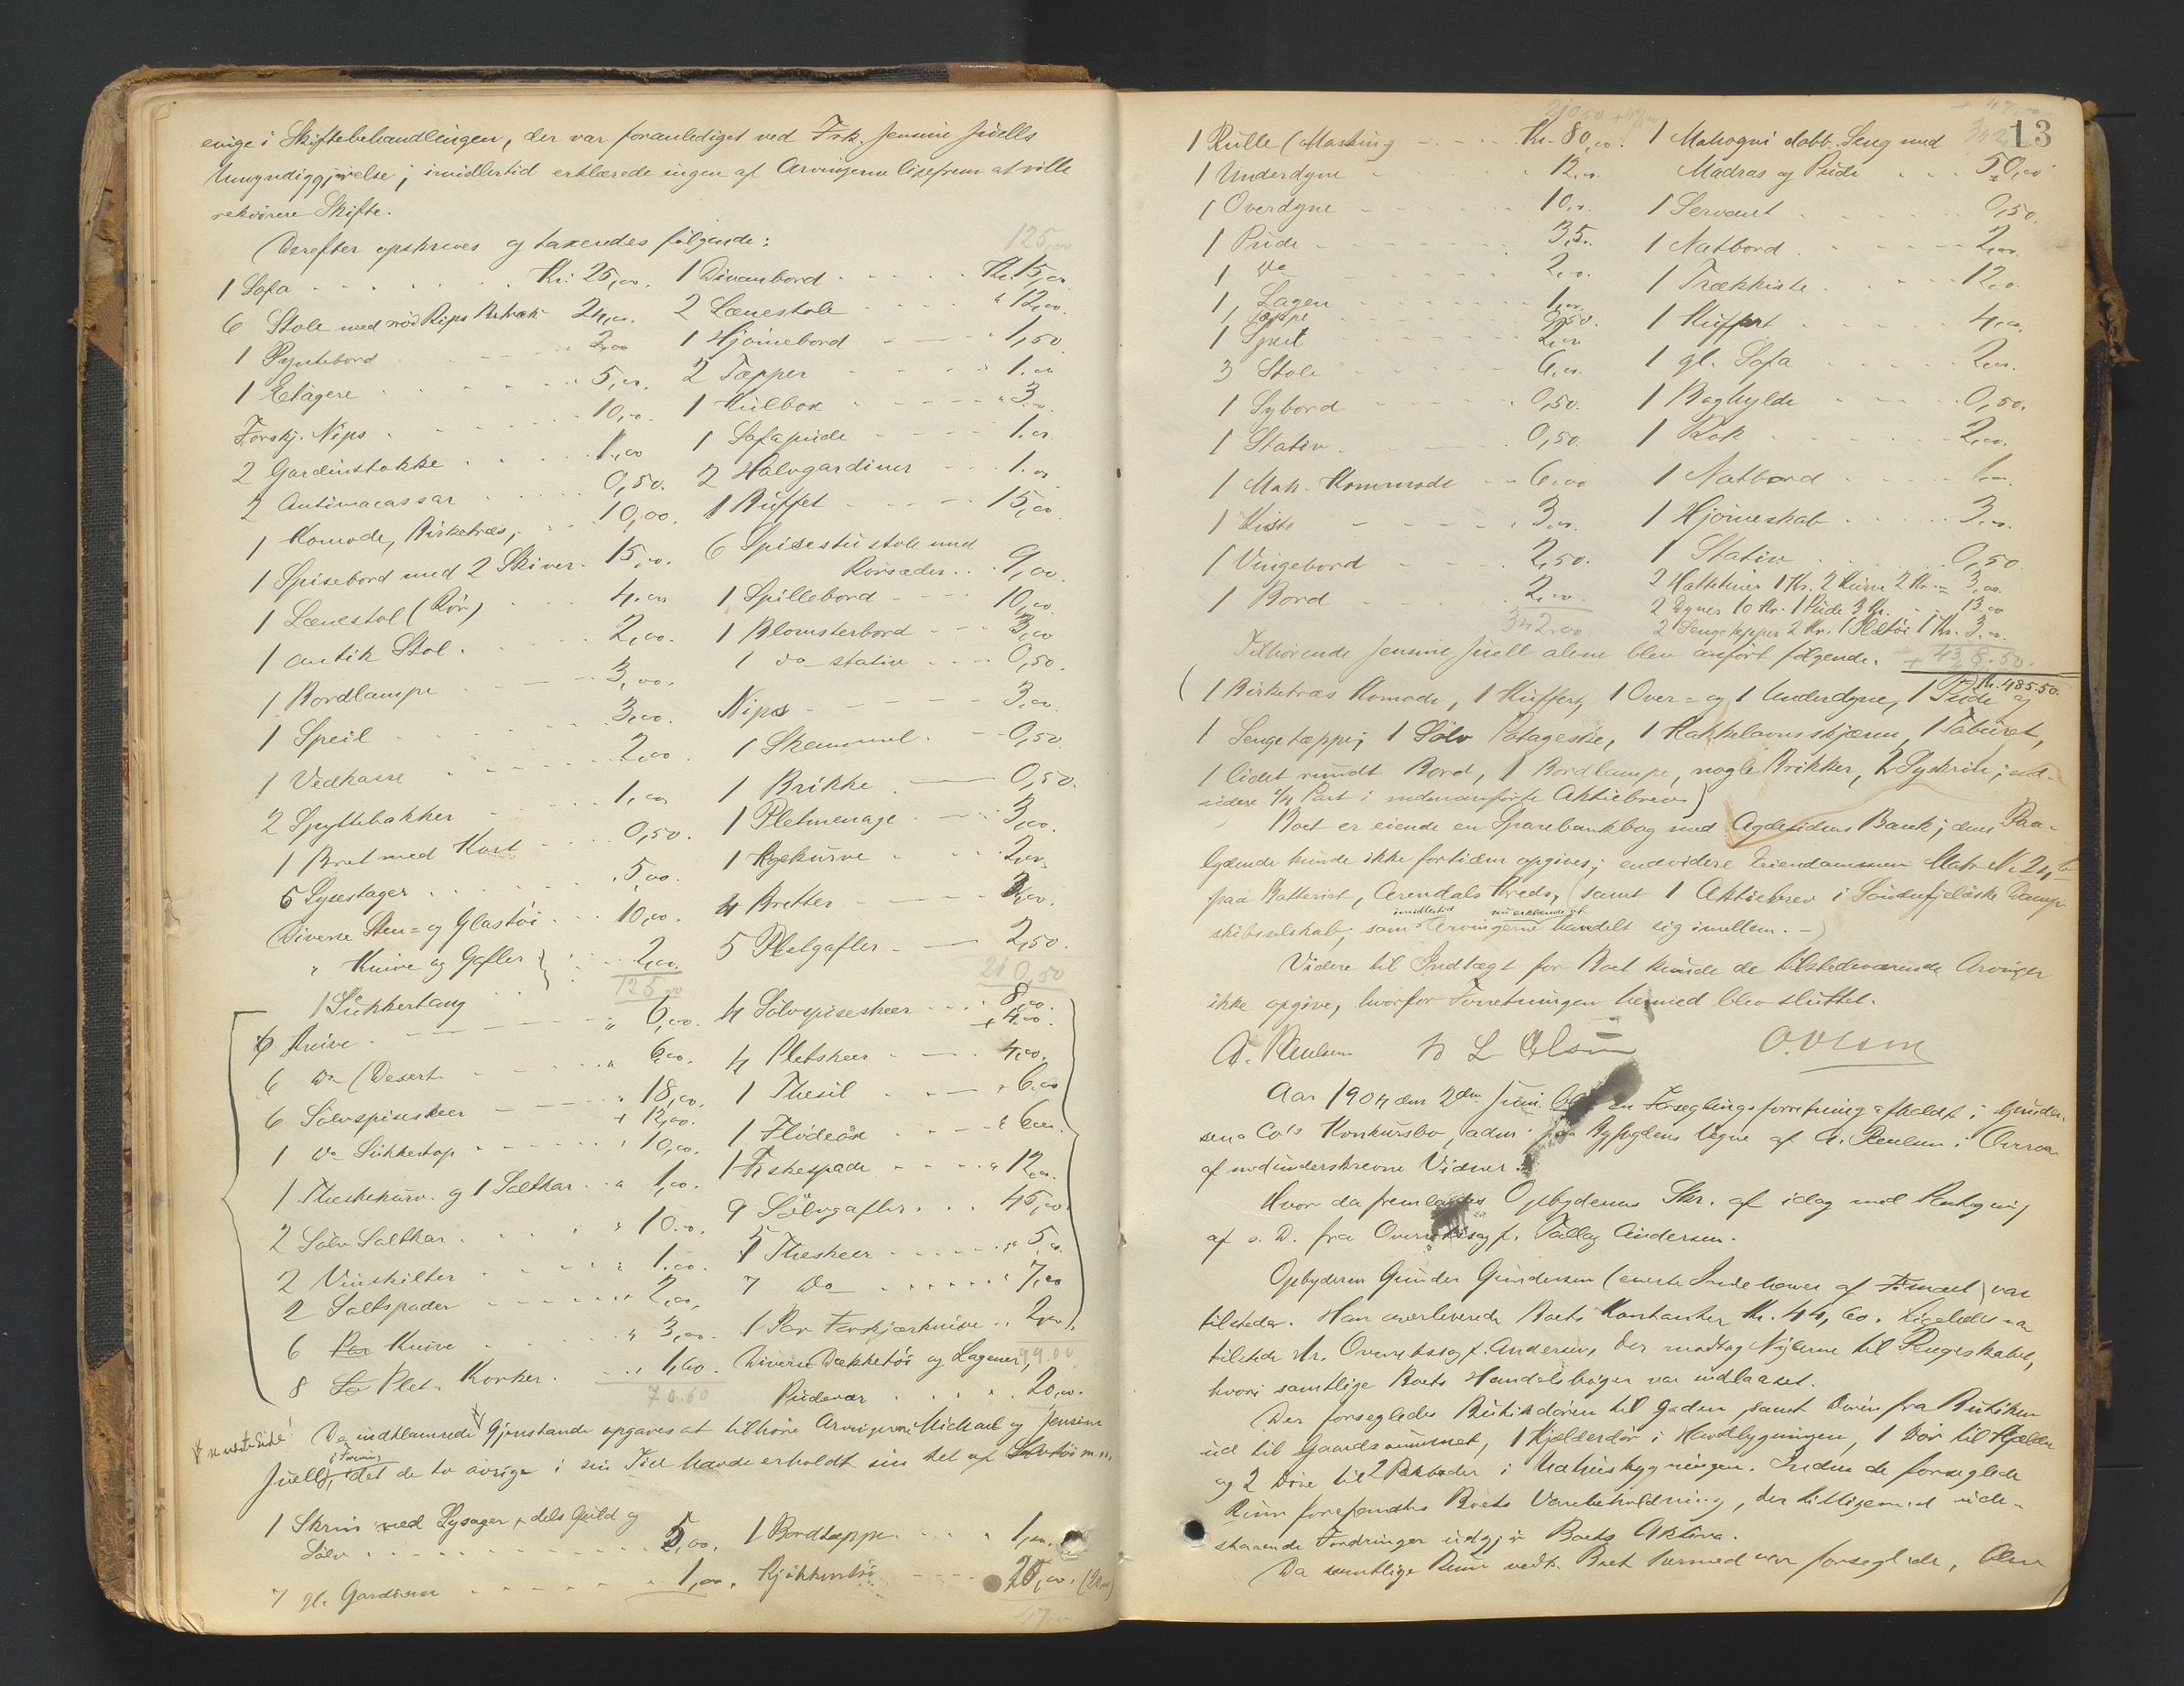 enige i Skiftebehandlingen, der var foranlediget ved Frk. Jensine Juells
Umyndiggjørelse; imidlertid erklærede ingen af Arvingerne ligefrem at ville
rekvirere Skifte.
Derefter opskreves og taxeredes følgende:
125,00
1 Sofa Kr. 25,00.
6 Stole med rød Rips Betræk 24,00.
1 Pyntebord 3,00
1 Etagere 5,00.
Forskj. Nips 10,00.
2 Gardinstokke 1,00
2 Antimacassar 0,50.
1 Komode, Birketræs, 10,00.
1 Spisebord med 2 Skiver. 15,00.
1 Lænestol (Rør) 4,00
1 antik Stol. 2,00.
1 Bordlampe 3,00.
1 Speil 3,00.
1 Vedkasse 2,00.
2 Spyttebakker 1,00
1 Bret med Kost 0,50.
5 Lysestager 5,00.
Diverse Sten= og Glastøi 10,00.
" Knive og Gafler } 2,00.
125,00
1 Divanbord Kr. 15,00.
2 Lænestole " 12,00.
1 Hjørnebord 1,50
2 Tæpper 1,00
1 Kulbox 3,00
1 Sofapude 1,00
2 Halvgardiner 1,00
1 Buffet 15,00
6 Spisestustole med
Rørsæder 9,00.
1 Spillebord 10,00
1 Blomsterbord 3,00
1 do stativ 0,50.
Nips 3,00
1 Skammel. 0,50
1 Brikke 0,50.
1 Pletmenage 3,00.
1 Kagekurve 2,00
4 Bretter 2,00.
5 Pletgafler 2,50.
210,50
1 Sukkertang " 6,00.
6 Knive.
6 Do (Desert " 6,00.
6 Sølvspiseskeer " 18,00.
+ 12,00.
1 Do Sukkerstøp " 10,00.
1 Theskekurv. og 1 Saltkar " 1,00.
2 Sølv Saltkar. " 10,00.
2 Vinskilter " 1,00.
2 Saltspader " 2,00,
6 Par Knive " 3,00.
8 Plet. Korker. 1,60.
70.60
4 Sølvspiseskeer 8,00.
+ 4,00.
4 Pletskeer 4,00.
1 Thesil 6,00
1 Flødeøse 6,00.
1 Fiskespade " 12,00.
9 Sølvgafler. 45,00
5 Theskeer " 5,00.
7 Do 7,00
1 Par Forskjærknive 2,00.
99.00
Diverse Dækketøi og Lagener,
Pudevar 20,00.
Da indklamrede Gjenstande opgaves at tilhøre Arvingerne Michael og Jensine
Juell, idet de to øvrige i sin Tid havde erholdt sin del af Sølvtøi m.m,
1 Skrin med Sysager, dels Guld og
Sølv 5,00.
7 gl. Gardiner " 1,00.
1 Bordtæppe " 1,00.
Kjøkkentøi 20,00. (20,00)
47
13
1 Rulle (Maskin) Kr. 80,00.
1 Underdyne 12,00.
1 Overdyne 10,00.
1 Pude 3,50.
1 Do 2,00.
1 Lagen 1,00.
1 Tæppe 0,50.
1 Speil 2,00
3 Stole 6,00.
1 Sybord 0,50.
1 Stativ 0,50.
1 Mah. Kommode 6,00
1 Kiste 3,00.
1 Vingebord 2,50.
1 Bord 2,00.
342,00
1 Mahogni dobb. Seng med
Madras og Pude 50,00
1 Servant 0,50.
1 Natbord 2,00.
1 Trækkiste 12,00.
1 Kuffert 4,00.
1 gl. Sofa 2,00.
1 Boghylde 0,50.
1 Rok 2,00.
1 Natbord 1,00.
1 Hjørneskab 3,00.
1 Stativ 0,50.
2 Hatteæsker 1 Kr. 2 Kurve 2 Kr. = 3,00.
2 Dyner 10 Kr. 1 Pude 3 Kr. 13,00
2 Sengetæpper 2 Kr. 1 Slætøi 1 Kr. 3,00.
438.50.
Kr. 485.50.
Tilhørende Jensine Juell alene blev anført følgende:
(1 Birketræs Komode, 1 Kuffert, 1 Over= og 1 Underdyne, 1 Pude og
1 Sengetæppe; 1 Sølv Potageske, 1 Kakkelovnsskjærm, 1 Taburet,
1 lidet rundt Bord, 1 Bordlampe, nogle Brikker, 2 Syskrin; end-
videre 1/4 Part i nedenanførte Aktiebrev)
Boet er eiende en Sparebankbog med Agdesidens Bank; dens Paa-
lydende kunde ikke fortiden opgives; endvidere Eiendommen Matr. No 24 b
paa Batteriet, Arendals Kreds, (samt 1 Aktiebrev i Søndenfjeldske Damp-
skibsselskab, som imidlertid Arvingerne nu erklærede at havde delt sig imellem.-)
Videre til Indtægt for Boet kunde de tilstedeværende Arvinger
ikke opgive, hvorfor Forretningen hermed blev sluttet.
A. Reulsen H L Olsen O. Olsen
Aar 1904 den 2den Juni blev en Forseglingsforretning afholdt i Gunder-
sen & Co's Konkursbo, adm: for Byfogdens Vegne af A. Reulsen i Overvær
af nedunderskrevne Vidner.
Hvor da fremlagdes Opbydernes Skr. af idag med Paategning
af s. D. fra Overretssagf. Tallag Andersen.
Opbyderen Gunder Gundersen (eneste Indehaver af Firmaet) var
tilstede. Han overleverede Boets Kontanter Kr. 44,60. Ligeledes var
tilstede Hr. Overretssagf. Andersen, der modtog Nøglerne til Pengeskabet,
hvori samtlige Boets Handelsbøger var indlaaset.
Der forsegledes Butikdøren til Gaden, samt Døren fra Butiken
ud til Gaardsrummet, 1 Kjælderdør i Hovedbygningen, 1 Dør til Kjælder
og 2 Døre til 2 Pakboder i Udhusbygningen. Inden de forseglede
Rum forefandtes Boets Varebeholdning, der tilligemed ude-
staaende Fordringer udgjør Boets Aktiva.
Da samtlige Rum vedk. Boet hermed var forseglede, blev